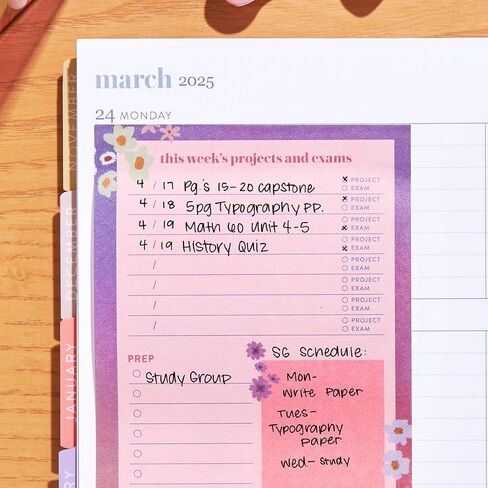 march 2025
24 MONDAY
this week's projects and exams
4 / 17 Pg.'s 15-20 capstone PROJECT EXAM
4 / 18 5pg Typography PP. PROJECT EXAM
4 / 19 Math 60 Unit 4-5 PROJECT EXAM
4 / 19 History Quiz PROJECT EXAM
/ PROJECT EXAM
/ PROJECT EXAM
/ PROJECT EXAM
/ PROJECT EXAM
PREP
Study Group
SG Schedule:
Mon-
Write Paper
Tues-
Typography
paper
Wed- study
NOVEMBER
DECEMBER
JANUARY